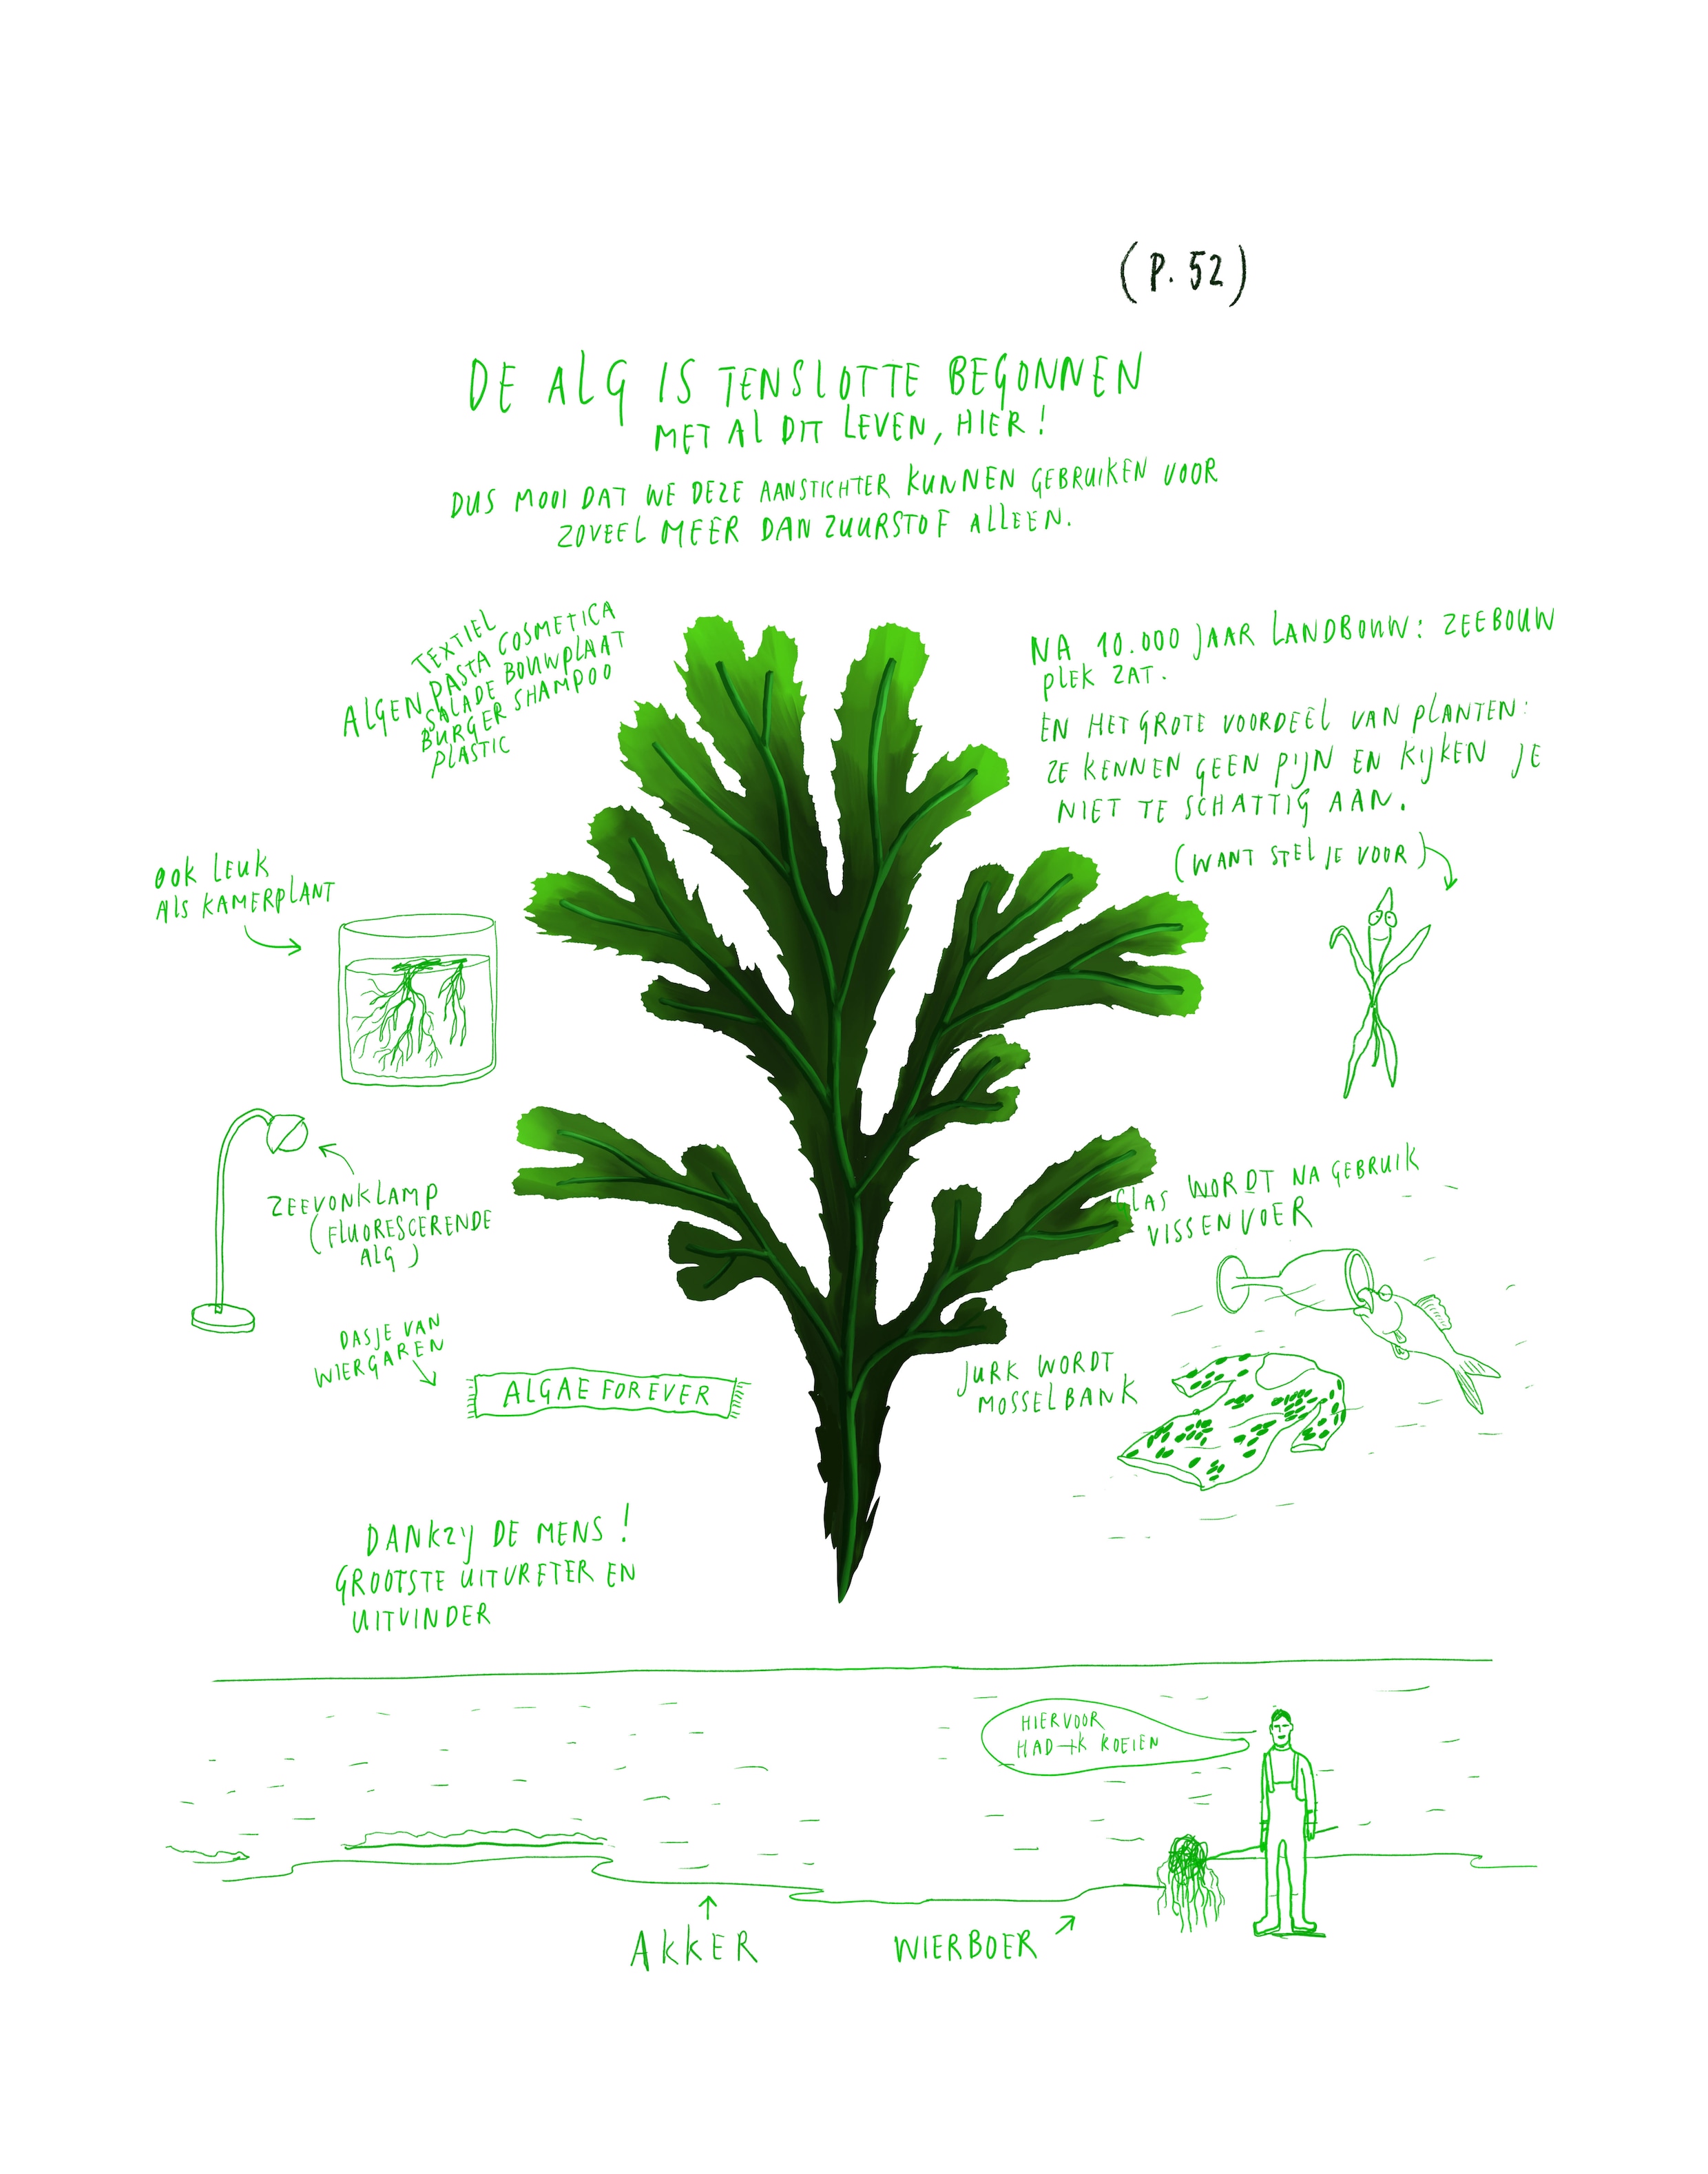 (P. 52)
DE ALG IS TENSLOTTE BEGONNEN
MET AL DIT LEVEN, HIER!
DUS MOOI DAT WE DEZE AANSTICHTER KUNNEN GEBRUIKEN VOOR
ZOVEEL MEER DAN ZUURSTOF ALLEEN.
TEXTIEL
ALGEN PASTA COSMETICA
SALADE BOUWPLAAT
BURGER SHAMPOO
PLASTIC
NA 10.000 JAAR LANDBOUW: ZEEBOUW
PLEK ZAT.
EN HET GROTE VOORDEEL VAN PLANTEN:
ZE KENNEN GEEN PIJN EN KIJKEN JE
NIET TE SCHATTIG AAN.
(WANT STEL JE VOOR)
OOK LEUK
ALS KAMERPLANT
ZEEVONKLAMP
(FLUORESCERENDE
ALG)
GLAS WORDT NA GEBRUIK
VISSENVOER
DASJE VAN
WIERGAREN
ALGAE FOREVER
JURK WORDT
MOSSELBANK
DANKZIJ DE MENS!
GROOTSTE UITVRETER EN
UITVINDER
HIERVOOR
HAD IK KOEIEN
AKKER
WIERBOER